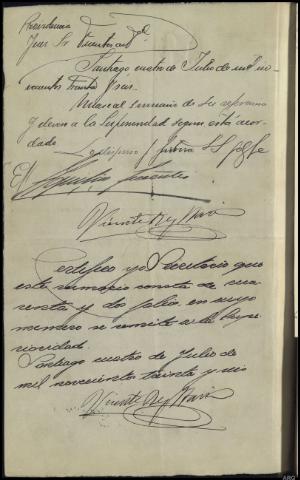 Providencia
Juez Sr
Santiago cuatro de Julio de mil no-
vecientos treinta y seis.
Unase al sumario de su
y elevese a la Superioridad segun está acor-
dado.
Lo dispuso y firma S Sª doy fe
El
Vicente Rey
Certifico yo Secretario que
este sumario consta de cua-
renta y dos folios en cuyo
numero se remite a la Supe-
rioridad.
Santiago cuatro de Julio de
mil novecientos treinta y seis
Vicente Rey
ARG